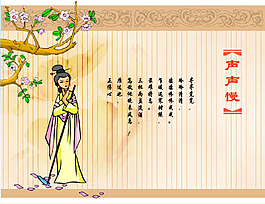 【声声慢】
寻寻觅觅，
冷冷清清，
凄凄惨惨戚戚。
乍暖还寒时候，
最难将息。
三杯两盏淡酒，
怎敌他晚来风急！
雁过也，
正伤心，